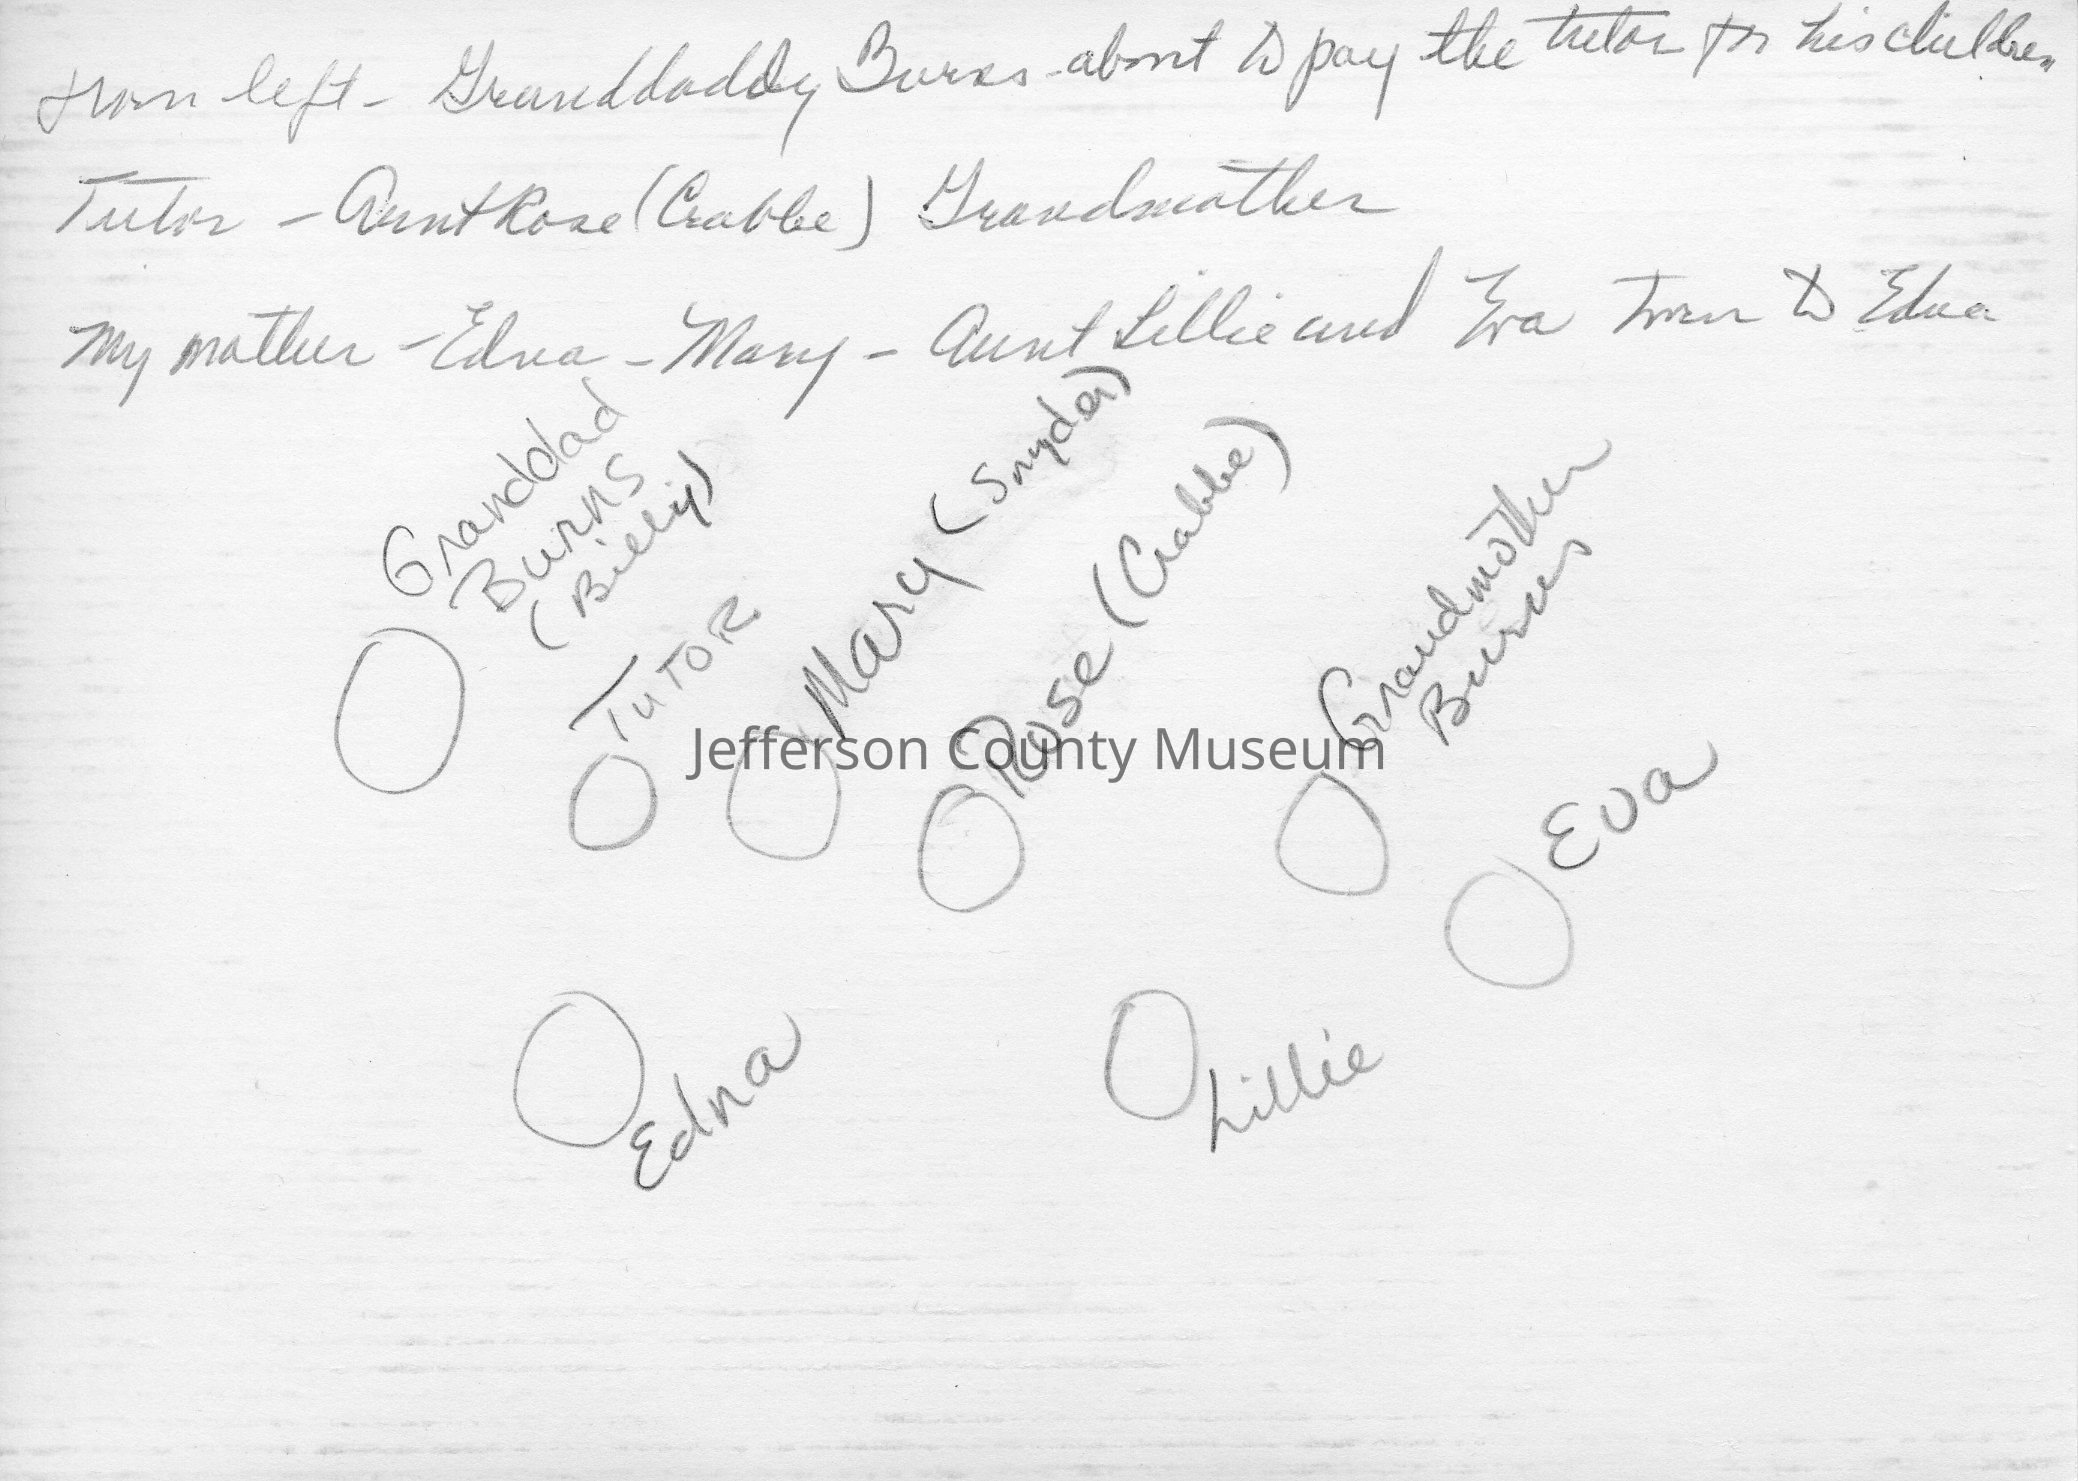 from left - Granddaddy Burns - about to pay the tutor for his children
Tutor - Aunt Rose (Crabbe) Grandmother
My mother - Edna - Mary - Aunt Lillie and Eva twin to Edna
Granddad
Burns
(Billy)
TUTOR
Mary (Snyder)
Rose (Crabbe)
Grandmother
Burns
Eva
Jefferson County Museum
Edna
Lillie